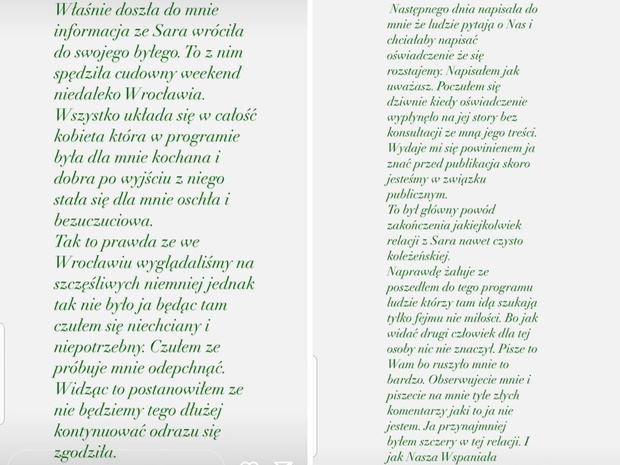 Właśnie doszła do mnie
informacja ze Sara wróciła
do swojego byłego. To z nim
spędziła cudowny weekend
niedaleko Wrocławia.
Wszystko układa się w całość
kobieta która w programie
była dla mnie kochana i
dobra po wyjściu z niego
stała się dla mnie oschła i
bezuczuciowa.
Tak to prawda ze we
Wrocławiu wyglądaliśmy na
szczęśliwych niemniej jednak
tak nie było ja będąc tam
czułem się niechciany i
niepotrzebny. Czułem ze
próbuje mnie odepchnąć.
Widząc to postanowiłem ze
nie będziemy tego dłużej
kontynuować odrazu się
zgodziła.
Następnego dnia napisała do
mnie że ludzie pytają o Nas i
chciałaby napisać
oświadczenie że się
rozstajemy. Napisałem jak
uważasz. Poczułem się
dziwnie kiedy oświadczenie
wypłynęło na jej story bez
konsultacji ze mną jego treści.
Wydaje mi się powinienem ja
znać przed publikacja skoro
jesteśmy w związku
publicznym.
To był główny powód
zakończenia jakiejkolwiek
relacji z Sara nawet czysto
koleżeńskiej.
Naprawdę żałuje ze
poszedłem do tego programu
ludzie którzy tam idą szukają
tylko fejmu nie miłości. Bo jak
widać drugi człowiek dla tej
osoby nic nie znaczył. Pisze to
Wam bo ruszyło mnie to
bardzo. Obserwujecie mnie i
piszecie na mnie tyle złych
komentarzy jaki to ja nie
jestem. Ja przynajmniej
byłem szczery w tej relacji. I
jak Nasza Wspaniała